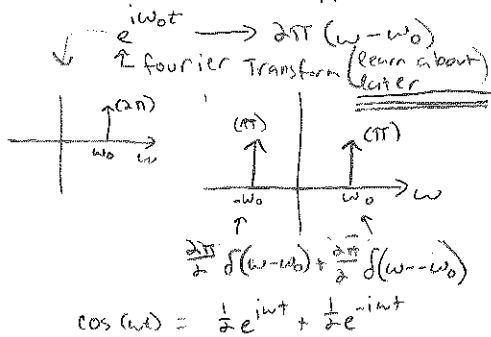 e^{iω₀t} → 2π (ω-ω₀)
↑ fourier Transform (learn about later)
(2π)
ω₀ ω
(π) (π)
-ω₀ ω₀ ω
2π/2 δ(ω-ω₀) + 2π/2 δ(ω--ω₀)
cos(ωt) = 1/2 e^{iωt} + 1/2 e^{-iωt}